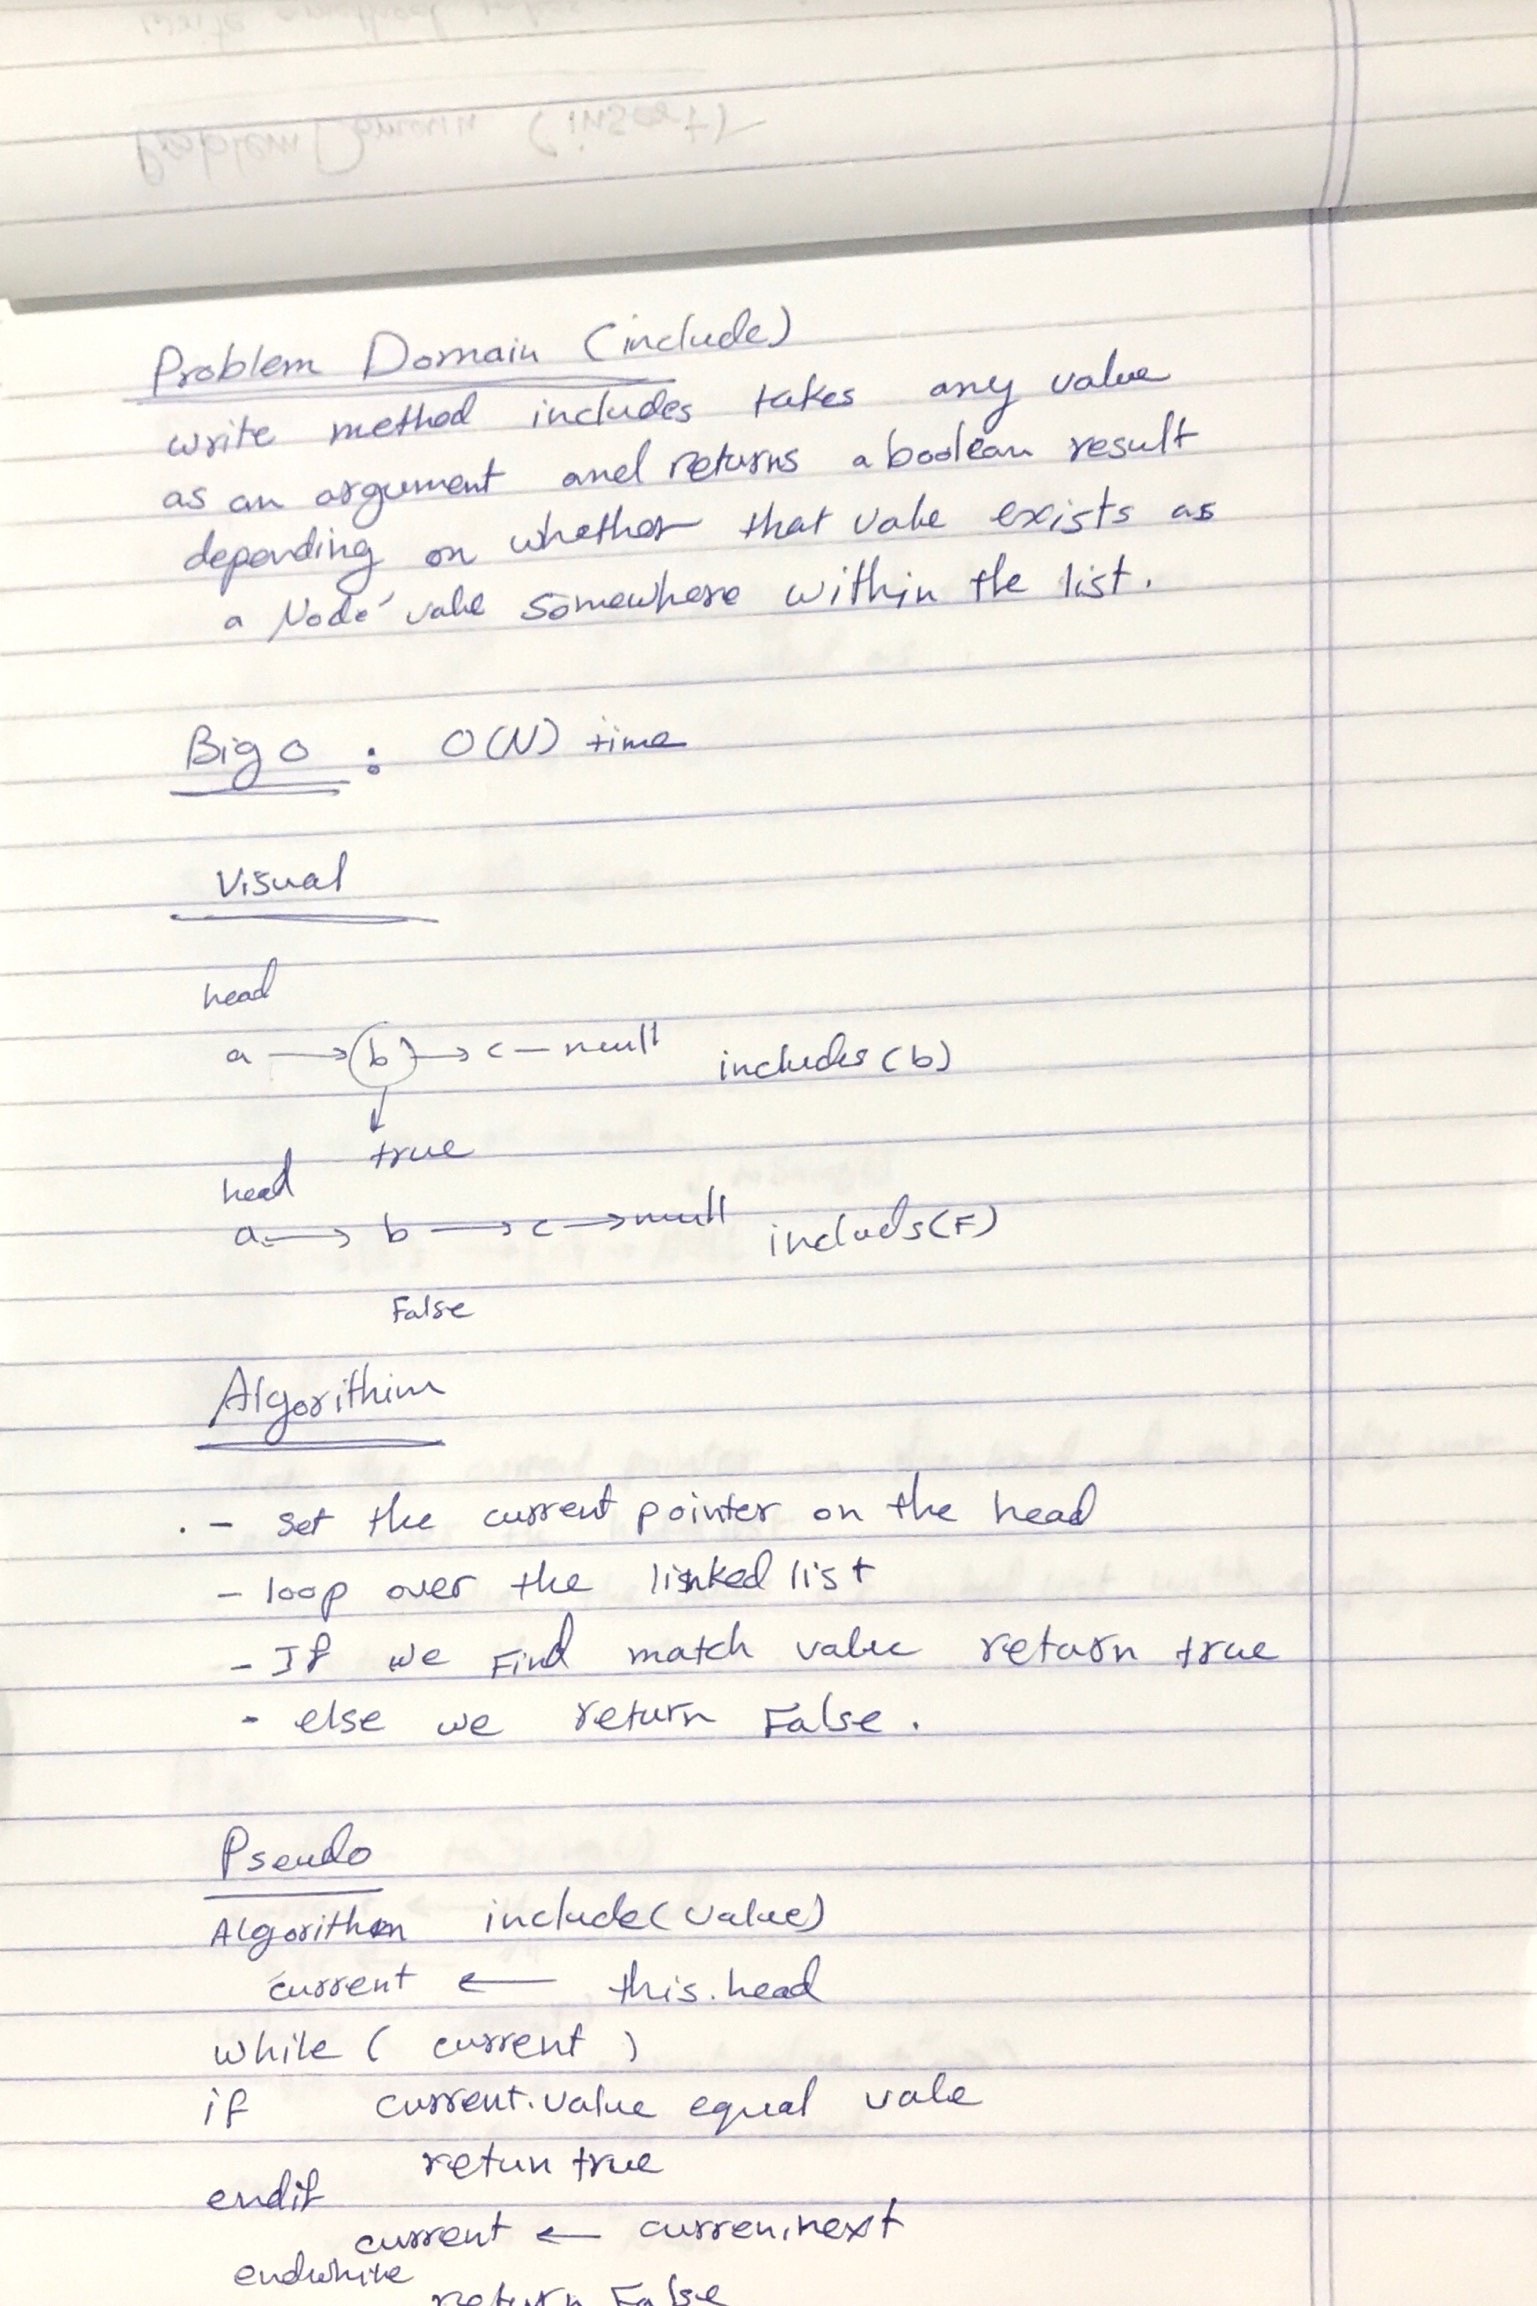 Problem Domain (include)
write method includes takes any value
as an argument and returns a boolean result
depending on whether that vale exists as
a Node' vale somewhere within the list.
Big O : O(N) time
Visual
head
a → b → c — null includes (b)
↓
true
head
a → b → c → null includs(F)
False
Algorithim
- set the current pointer on the head
- loop over the linked list
- If we Find match value return true
- else we return False.
Pseudo
Algorithm include(value)
current ← this.head
while ( current )
if current.value equal vale
retun true
endif
current ← curren.next
endwhile
return False